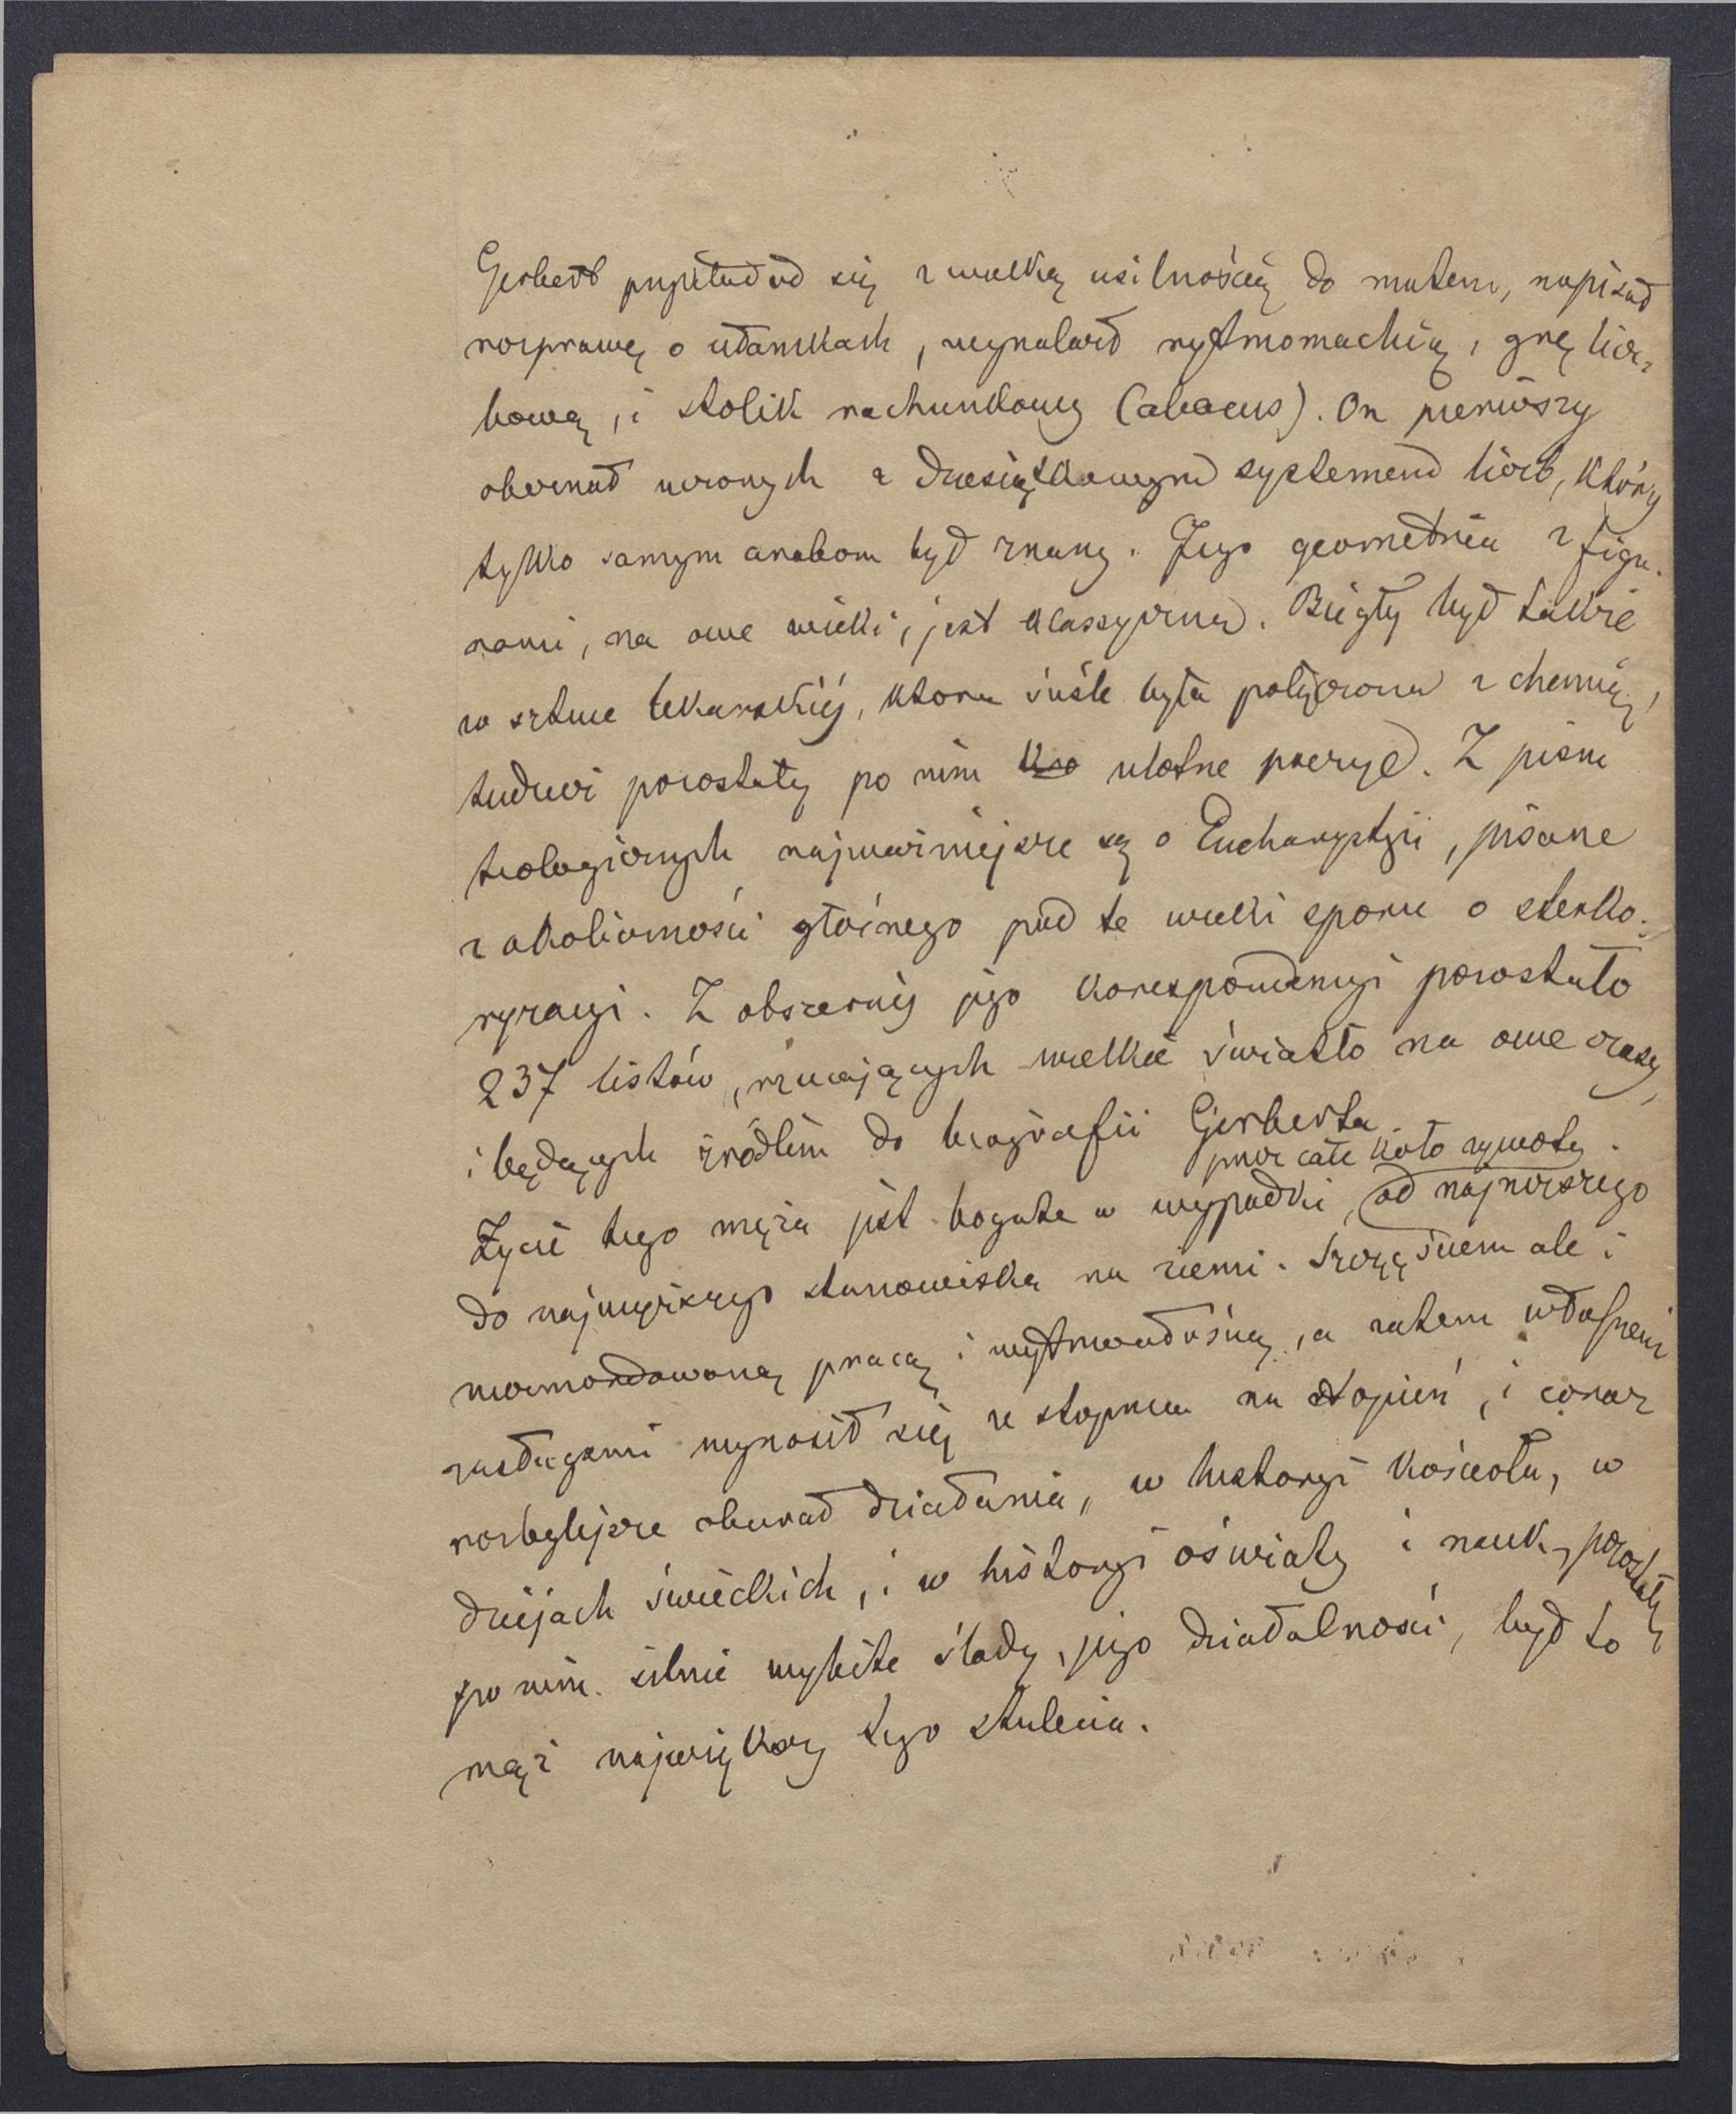 Gerbert przykładał się z wielką usilnością do matem, napisał
rozprawę o ułamkach, wynalazł rytmomachią, grę licz-
bową, i stolik rachunkowy (abacus). On pierwszy
obeznał uczonych z dziesiątkowym systemem liczb, który
tylko samym arabom był znany. Jego geometria z figu-
rami, na owe wieki, jest klassyczna. Biegły był także
w sztuce lekarskiéj, która ściśle była połączona z chemią,
tudzież pozostały po nim ulotne poezye. Z pism
teologicznych najważniejsze są o Eucharystyi, pisane
z okoliczności głośnego pod te wieki sporu o sterko-
ryzacyi. Z obszernéj jego korespondencyi pozostało
237 listów, rzucających wielkie światło na owe czasy,
i będących źródłem do biografii Gerberta.
przez całe koło żywota.
Życie tego męża jest bogate w wypadki, od najniższego
do najwyższego stanowiska na ziemi. Szczęściem ale i
niezmordowaną pracą i wytrwałością, a zatem własnemi
zasługami wynosił się ze stopnia na stopień, i coraz
rozleglejsze obszar działania, w historyi kościoła, w
dziejach świeckich, i w historyi oświaty i nauk, pozostały
po nim silnie wybite ślady, jego działalności, był to
mąż największy tego stulecia.